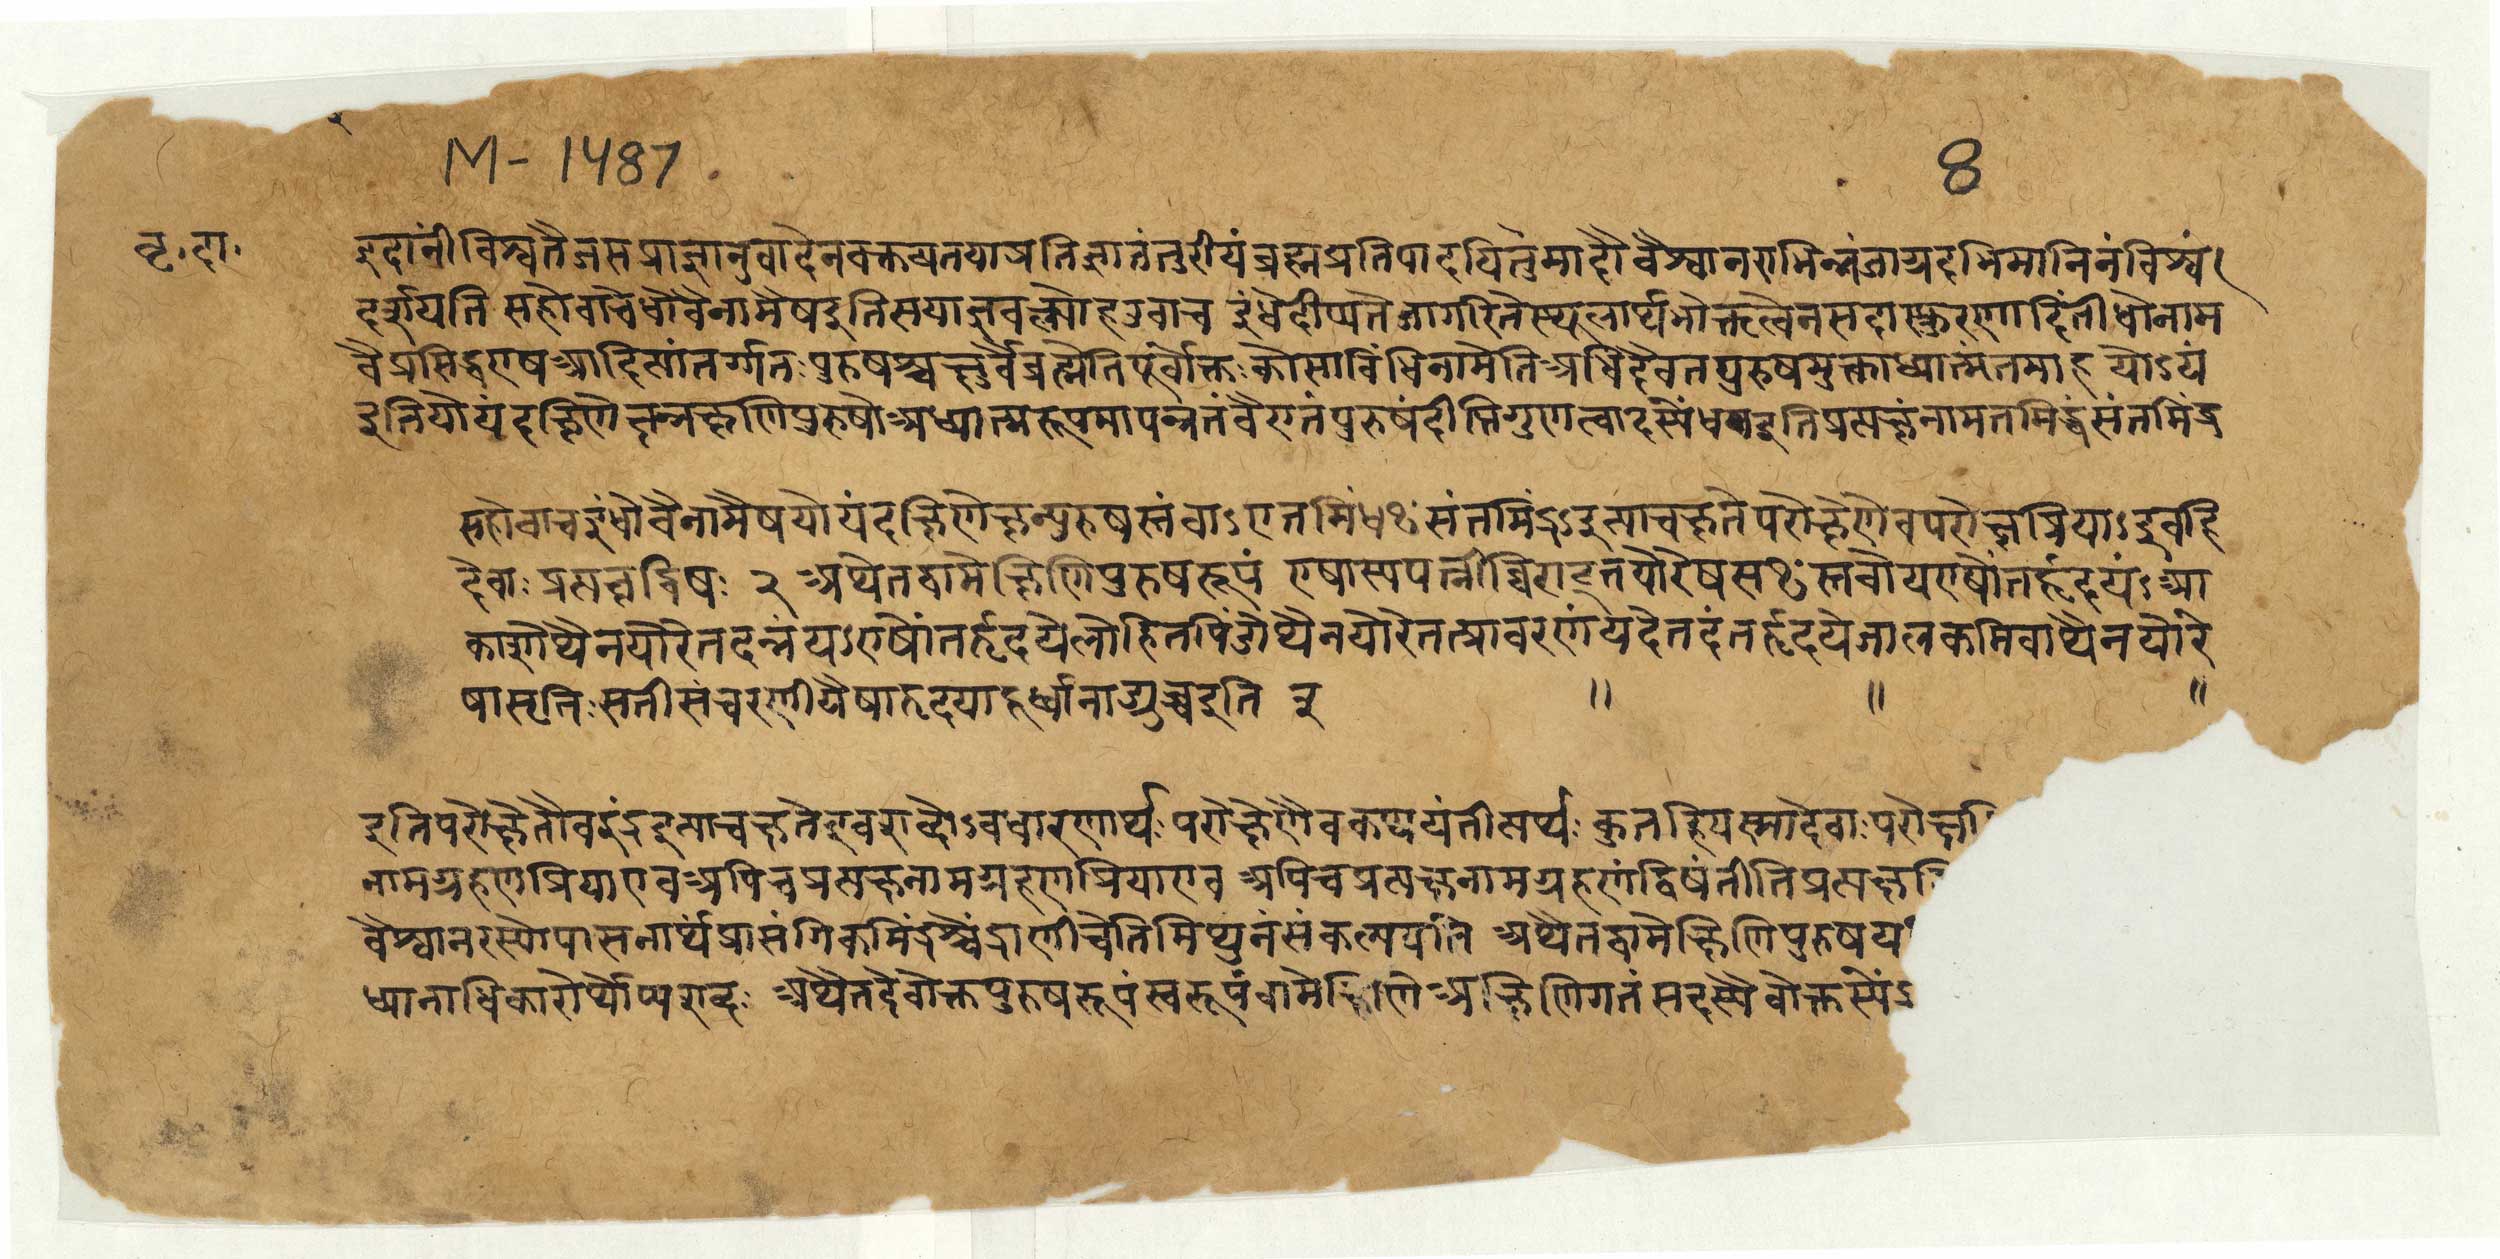 M-1487
8
बृ.दा.
इदानीं विश्वतैजसप्राज्ञानुवादेनवक्तव्यतयाप्रतिज्ञातंतुरीयंब्रह्मप्रतिपादयितुमादौवैश्वानराभिन्नंजाग्रदभिमानिनंविश्वं
दर्शयति सहोवाचेंधोवैनामैषइतिसयाज्ञवल्क्योहउवाच इंधेदीप्यतेजागरितेस्थूलार्थभोक्तृत्वेनसदास्फुरणादितींधोनाम
वैप्रसिद्धएषआदित्यांतर्गतःपुरुषश्चक्षुर्वैब्रह्मेतिपूर्वोक्तःकोसाविंधिनामेतिअधिदैवतपुरुषमुक्ताध्यात्मंतमाह योऽयं
इतियोयंदक्षिणेक्षन्नक्षणिपुरुषोअध्यात्मरूपमापन्नतंवैएतंपुरुषंदीप्तिगुणत्वादस्येंध इतिप्रत्यक्षंनामतमिद्धंसंतमिंद्र
सहोवाचइंधोवैनामैषयोयंदक्षिणेक्षन्पुरुषस्तंवाऽएतमिंधꣳसंतमिंद्रऽइत्याचक्षतेपरोक्षेणेवपरोक्षप्रियाऽइवहि
देवाः प्रत्यक्षद्विषः २ अथैतद्वामेक्षिणिपुरुषरूपं एषास्यपत्नीविराट्तयोरेषसꣳस्तवोयएषोंतर्हृदयंऽआ
काशोथैनयोरेतदन्नंयऽएषोंतर्हृदयेलोहितपिंडोथैनयोरेतत्प्रावरणंयदेतदंतर्हृदयेजालकमिवाथैनयोरे
षासृतिःसतीसंचरणीयैषाहृदयादूर्ध्वानाड्युच्चरति ३ ॥ ॥ ॥
इतिपरोक्षेतैवइंद्रइत्याचक्षतेइवशब्दोऽवधारणार्थः परोक्षेणैवकथयंतीत्यर्थः कुतहियस्माद्देवाःपरोक्ष
नामग्रहणप्रियाएवअपिचप्रत्यक्षनामग्रहणप्रियाएव अपिचप्रत्यक्षनामग्रहणंद्विषंतीतिप्रत्यक्ष
वैश्वानरस्योपासनार्थंप्रासंगिकमिंद्रश्चेंद्राणीचेतिमिथुनंसंकल्पयति अथैतद्वामेक्षिणिपुरुषय
ध्यानाधिकारोर्थोप्यशब्दः अथैतदेवोक्तपुरुषरूपंस्वरूपंवामेक्षिणि अक्षिणिगतंसदस्यैवोक्तस्यें